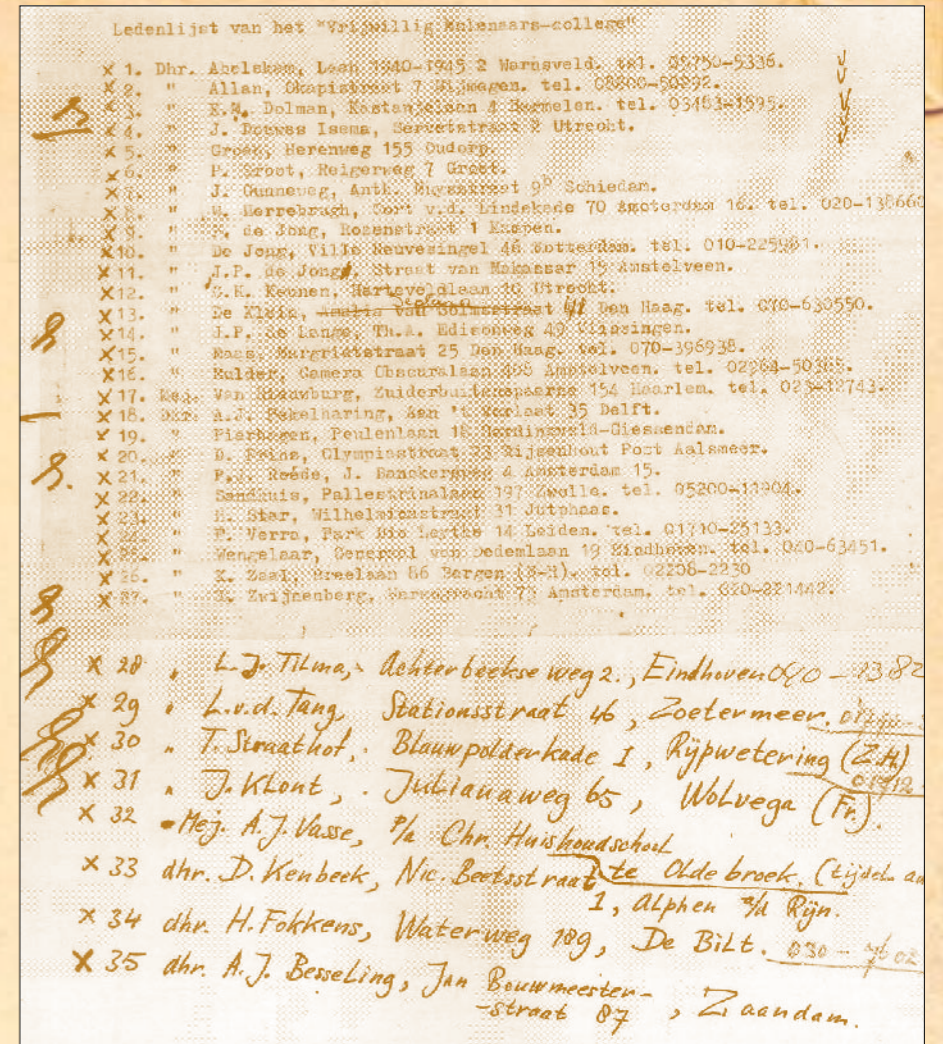 Ledenlijst van het "Vrijwillig Molenaars-college"
X 1. Dhr. Abelskam, Laan 1940-1945 2 Warnsveld. tel. 05750-5336.
X 2. " Allan, Okapistraat 7 Nijmegen. tel. 08800-50892.
X 3. " Dolman, Kastanjelaan 4 Harmelen. tel. 03483-1595.
X 4. " J. Douwes Isema, Servetstraat 2 Utrecht.
X 5. " Groen, Herenweg 155 Oudorp.
X 6. " P. Groot, Reigerweg 7 Groet.
X 7. " J. Gunneweg, Anth. 9b Schiedam.
X 8. " Herrebrugh, Cort v.d. Lindekade 70 Amsterdam 16. tel. 020-138660
X 9. " de Jong, Rozenstraat 1
X 10. " De Jong, Ville Neuvesingel 46 Rotterdam. tel. 010-225981.
X 11. " J.P. de Jong, Straat van Makassar 15 Amstelveen.
X 12. " Keunen, Herteveldlaan 10 Utrecht.
X 13. " De Klein, Amalia van Solmsstraat Den Haag. tel. 070-630550.
X 14. " J.P. de Lange, Th.A. Edisonweg 49 Vlissingen.
X 15. " Maas, Margrietstraat 25 Den Haag. tel. 070-396938.
X 16. " Mulder, Camera Obscuralaan 408 Amstelveen. tel.
X 17. Mej. Van Nieuwburg, Zuiderbuitenspaarne 154 Haarlem. tel. 023-12743.
X 18. Dhr. A.J. Pekelharing, Aan 't Verlaat 35 Delft.
X 19. " Pierhagen, Peulenlaan 18 Hardinxveld-Giessendam.
X 20. " D. Prins, Olympiastraat 23 Rijsenhout Post Aalsmeer.
X 21. " P.J. Reéde, J. Banckersweg 4 Amsterdam 15.
X 22. " Sandhuis, Pallestrinalaan 197 Zwolle. tel. 05200-14904.
X 23. " H. Star, Wilhelminastraat 31 Jutphaas.
X 24. " Verra, Park 14 Leiden. tel. 01710-25133.
X 25. " Wengelaar, Generaal van Dedemlaan 19 Eindhoven. tel. 040-63451.
X 26. " K. Zaal, Breelaan 86 Bergen (N-H). tel. 02208-2230
X 27. " Zwijnenberg, 73 Amsterdam. tel. 020-221442.
X 28 " L.J. Tilma, Achterbeekse weg 2., Eindhoven 040 - 
X 29 " L.v.d. Tang, Stationsstraat 46, Zoetermeer.
X 30 " T. Straathof, Blauwpolderkade 1, Rijpwetering (Z.H)
X 31 " J. Klont, Julianaweg 65, Wolvega (Fr.). 01712
X 32 " Mej. A.J. Vasse, p/a Chr. Huishoudschool
te Oldebroek. (tijdel. a
X 33 dhr. D. Kenbeek, Nic. Beetsstraat
1, Alphen a/d Rijn.
X 34 dhr. H. Fokkens, Waterweg 189, De Bilt. 030 - 
X 35 dhr. A.J. Besseling, Jan Bouwmeester-
-straat 87, Zaandam.